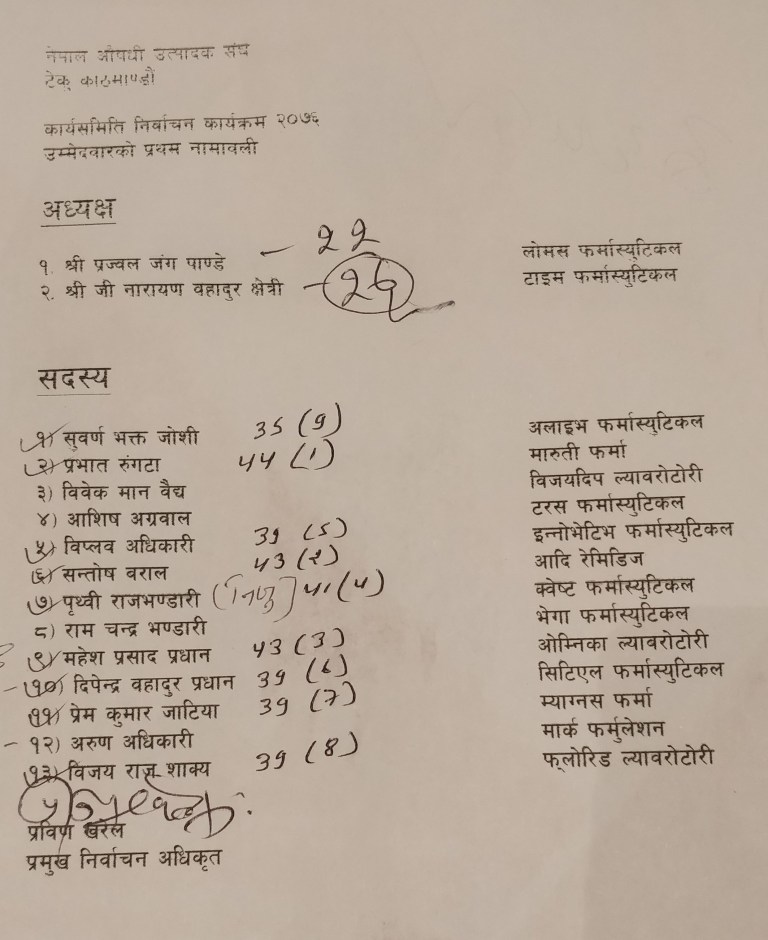 नेपाल औषधी उत्पादक संघ
टेकू काठमाण्डौं
कार्यसमिति निर्वाचन कार्यक्रम २०७६
उम्मेदवारको प्रथम नामावली
अध्यक्ष
१. श्री प्रज्वल जंग पाण्डे – २२ लोमस फर्मास्यूटिकल
२. श्री जी नारायण वहादुर क्षेत्री – २६ टाइम फर्मास्युटिकल
सदस्य
१) सुवर्ण भक्त जोशी 35 (9) अलाइभ फर्मास्युटिकल
२) प्रभात रुंगटा ४४ (1) मारुती फर्मा
३) विवेक मान वैद्य विजयदिप ल्यावरोटोरी
४) आशिष अग्रवाल टरस फर्मास्युटिकल
५) विप्लव अधिकारी 39 (5) इन्नोभेटिभ फर्मास्युटिकल
६) सन्तोष वराल ४3 (२) आदि रेमिडिज
७) पृथ्वी राजभण्डारी ४१ (४) क्वेष्ट फर्मास्युटिकल
८) राम चन्द्र भण्डारी भेगा फर्मास्युटिकल
९) महेश प्रसाद प्रधान ४3 (3) ओम्निका ल्यावरोटोरी
१०) दिपेन्द्र वहादुर प्रधान 39 (6) सिटिएल फर्मास्युटिकल
११) प्रेम कुमार जाटिया 39 (7) म्याग्नस फर्मा
१२) अरुण अधिकारी मार्क फर्मुलेशन
१३) विजय राज शाक्य 39 (8) फ्लोरिड ल्यावरोटोरी
प्रविण खरेल
प्रमुख निर्वाचन अधिकृत